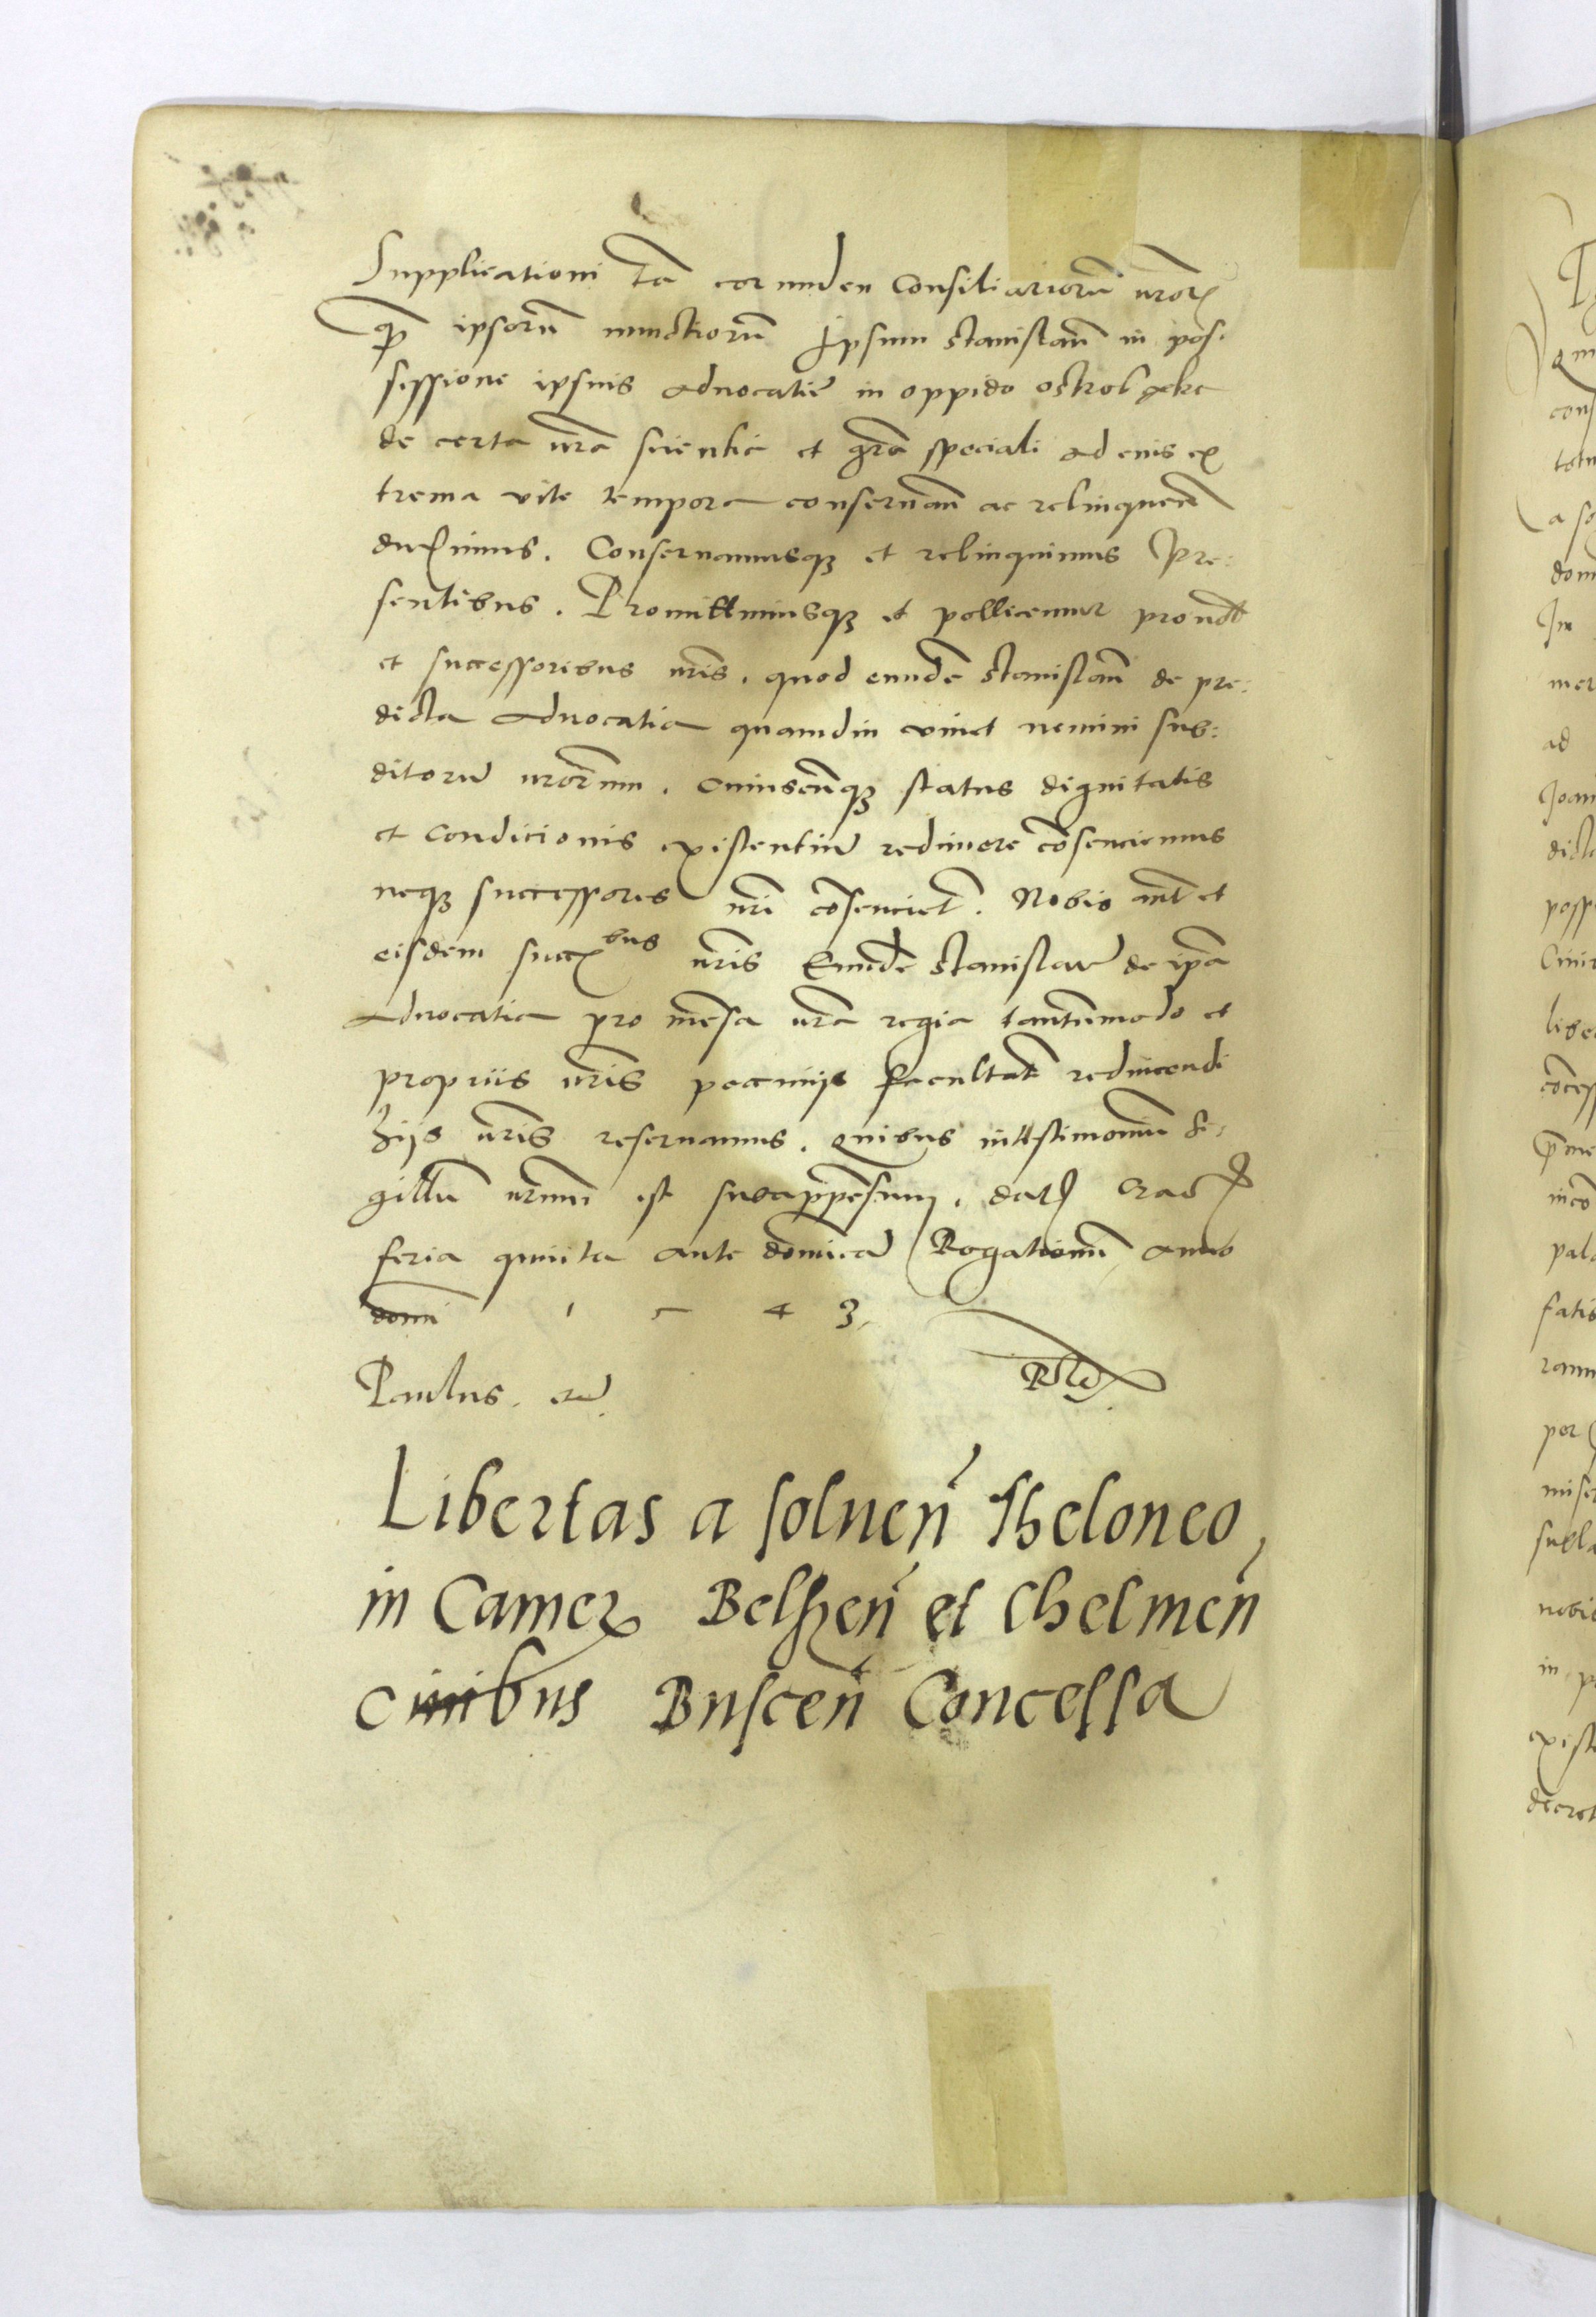 Supplicationi tã eorumden Consiliariorũ nr̃orꝫ
qꝫ ipsorũ nunctiorũ Ipsum Stanislaũ in pos:
sessione ipsius Advocatie in oppido ostrol
de certa nr̃a scientia et gr̃a speciali ad eius ex
trema vite tempora conseruañ ac relinqueñ
duximus. Conseruamusqꝫ et relinquimus Pre:
sentibus. Promittimusqꝫ et pollicemur pro
et successoribus nr̃is. quod eundẽ Stanislaũ de pre:
dicta Advocatia quamdiu vivet nemini sub:
ditorũ nr̃orum. Cuiuscũqꝫ status dignitatis
et Condicionis existentiũ redimere cõsenciemus
neqꝫ successores nr̃i cõsencient. Nobis aũt et
eisdem succꝫbus nr̃is Eundẽ Stanislaũ de ip̃a
Advocatia pro mẽsa nr̃a regia tantũmodo et
propriis nr̃is pecuniis facultatẽ redimendi
nr̃is reseruamus. Quibus in testimoniũ si:
gillũ nr̃um est subappẽsum. Datꝫ Crac
feria quinta ante dominicã Rogationũ Anno
domi 1 5 4 3.
Paulus.
Libertas a soluen̄ Theloneo
in Camerꝫ Belzen̄ et Chelmen̄
civibus Buscen̄ Concessa